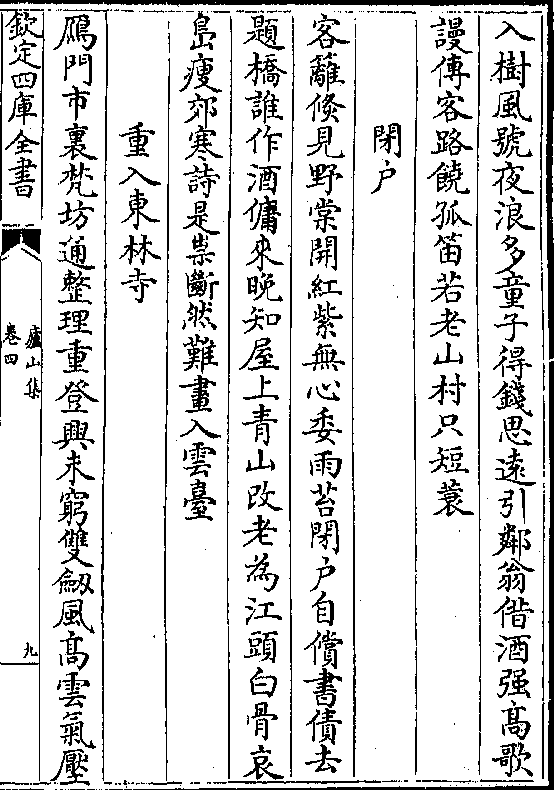 入樹風號夜浪多童子得錢思遠引鄰翁偕酒强高歌
謾傳客路饒孤笛若老山村只短蓑
閉戶
客籬倐見野棠開紅紫無心委雨苔閉戶自償書債去
題橋誰作酒傭來晚知屋上青山改老為江頭白骨哀
島瘦郊寒詩是祟斷然難畫入雲臺
重入東林寺
鴈門市裏梵坊通整理重登興未窮雙劒風髙雲氣壓
欽定四庫全書
廬山集
卷四
九